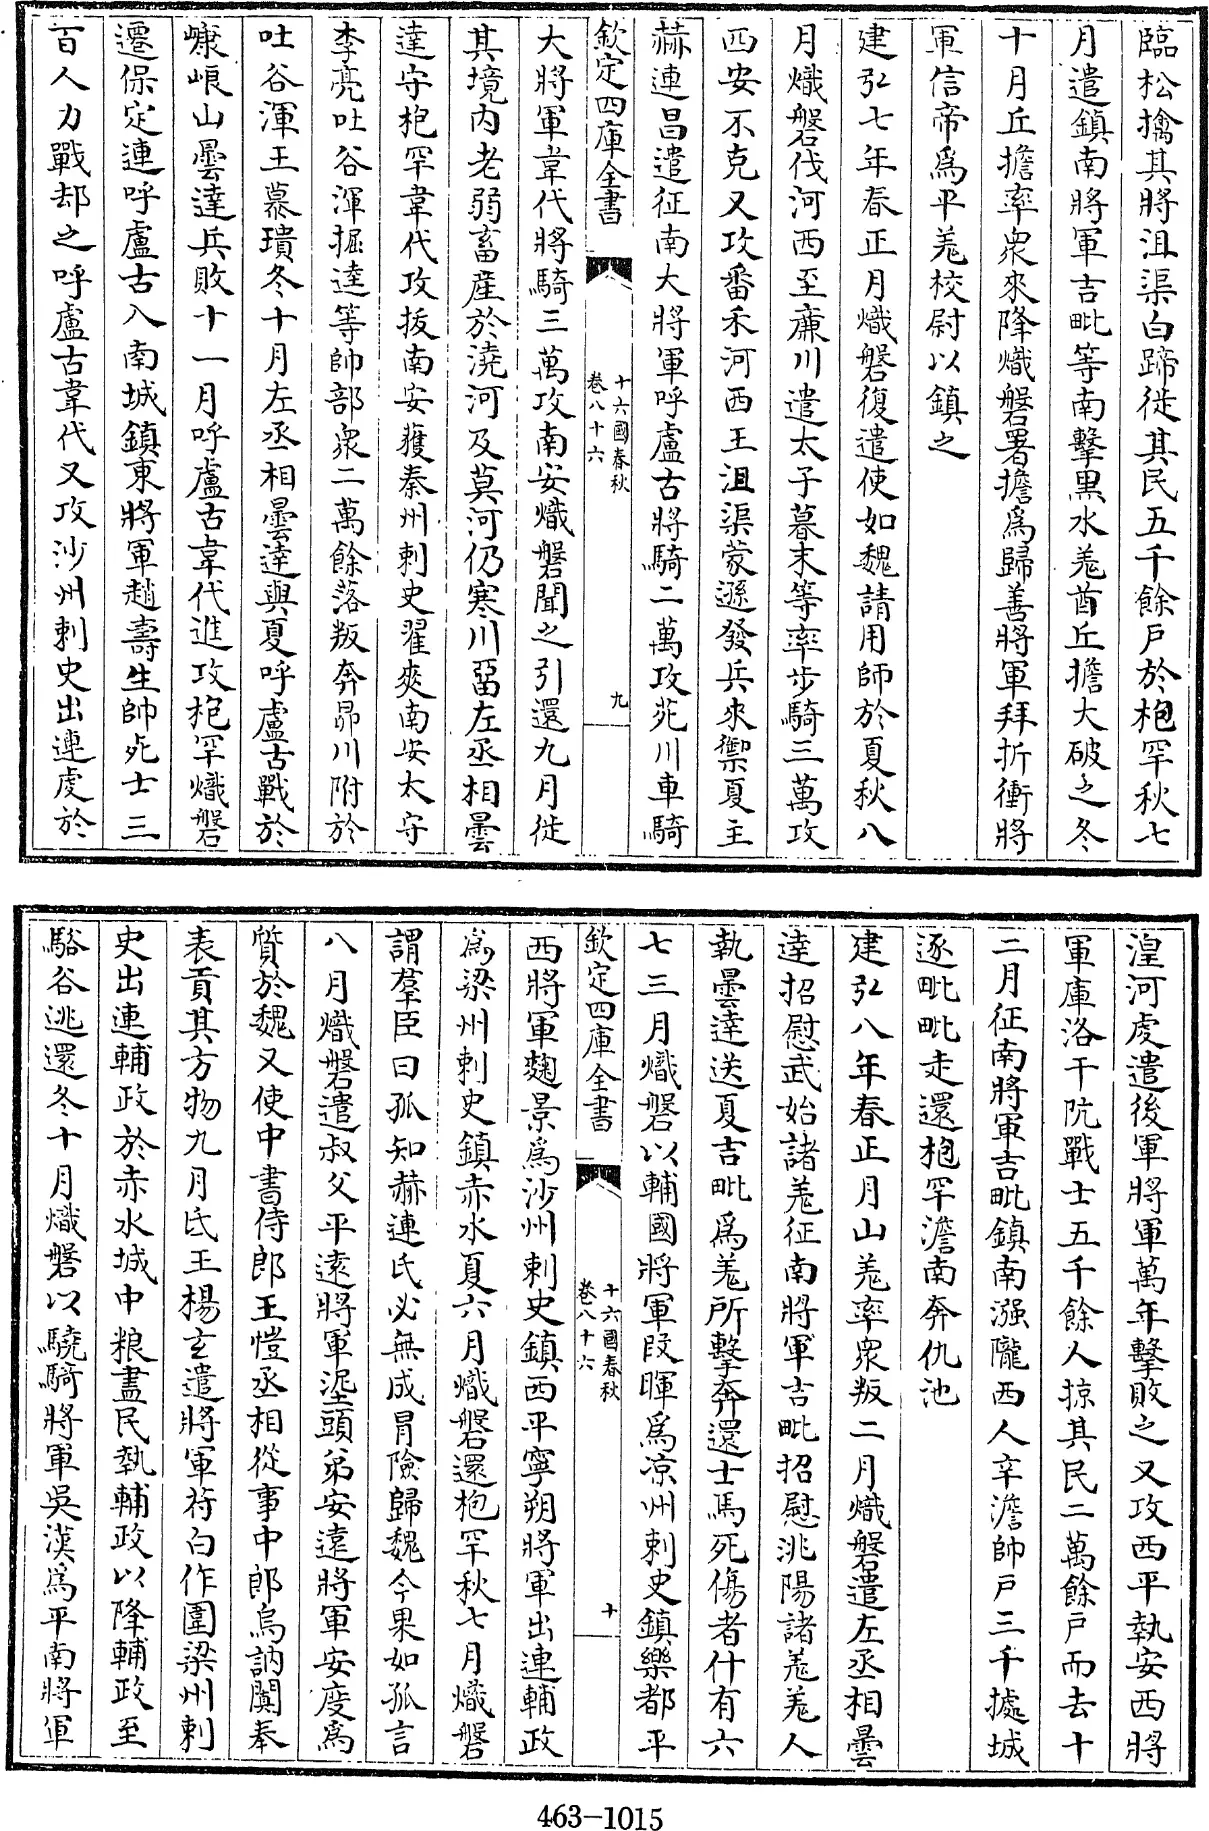 臨松擒其將沮渠白蹄徙其民五千餘戸於枹罕秋七
月遣鎮南將軍吉毗等南擊黑水羗酋丘擔大破之冬
十月丘擔率衆來降熾磐署擔爲歸善將軍拜折衝將
軍信帝爲平羗校尉以鎮之
建弘七年春正月熾磐復遣使如魏請用師於夏秋八
月熾磐伐河西至㢘川遣太子暮末等率步騎三萬攻
西安不克又攻番禾河西王沮渠蒙遜發兵來禦夏主
赫連昌遣征南大將軍呼盧古將騎二萬攻苑川車騎
欽定四庫全書
十六國春秋
卷八十六
九
大將軍韋代將騎三萬攻南安熾磐聞之引還九月徙
其境内老弱畜産於澆河及莫河仍寒川留左丞相曇
達守枹罕韋代攻拔南安獲秦州刺史翟爽南安太守
李亮吐谷渾掘逵等帥部衆二萬餘落叛奔昴川附於
吐谷渾王慕璝冬十月左丞相曇達與夏呼盧古戰於
嵻㟍山曇達兵敗十一月呼盧古韋代進攻枹罕熾磐
遷保定連呼盧古入南城鎮東將軍趙壽生帥死士三
百人力戰却之呼盧古韋代又攻沙州刺史出連䖍於
湟河䖍遣後軍將軍萬年擊敗之又攻西平執安西將
軍庫洛干阬戰士五千餘人掠其民二萬餘戸而去十
二月征南將軍吉毗鎮南漒隴西人辛澹帥戸三千據城
逐毗毗走還枹罕澹南奔仇池
建弘八年春正月山羗率衆叛二月熾磐遣左丞相曇
達招慰武始諸羗征南將軍吉毗招慰洮陽諸羗羗人
執曇達送夏吉毗爲羗所擊奔還士馬死傷者什有六
七三月熾磐以輔國將軍叚暉爲凉州刺史鎮樂都平
欽定四庫全書
十六國春秋
卷八十六
十
西將軍麴景爲沙州刺史鎮西平寧朔將軍出連輔政
爲梁州刺史鎮赤水夏六月熾磐還枹罕秋七月熾磐
謂羣臣曰孤知赫連氏必無成冒險歸魏今果如孤言
八月熾磐遣叔父平逺將軍渥頭弟安逺將軍安度爲
質於魏又使中書侍郎王愷丞相從事中郎烏訥闐奉
表貢其方物九月氐王楊玄遣將軍苻白作圍梁州刺
史出連輔政於赤水城中粮盡民執輔政以降輔政至
駱谷逃還冬十月熾磐以驍騎將軍吳漢爲平南將軍
463-1015